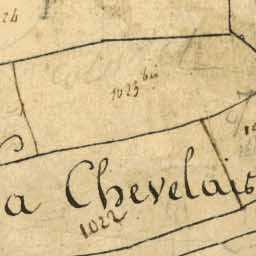 24
1023 bis
a Chevelais
1022